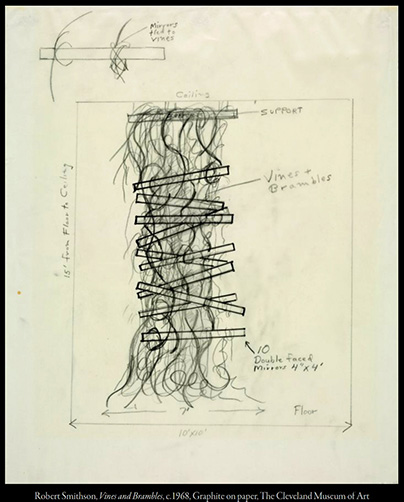 Mirrors
tied to
vines
Ceiling
SUPPORT
Vines +
Brambles
15' from Floor to Ceiling
10
Double faced
Mirrors 4"x4'
7'
Floor
10'x10'
Robert Smithson, Vines and Brambles, c.1968, Graphite on paper, The Cleveland Museum of Art